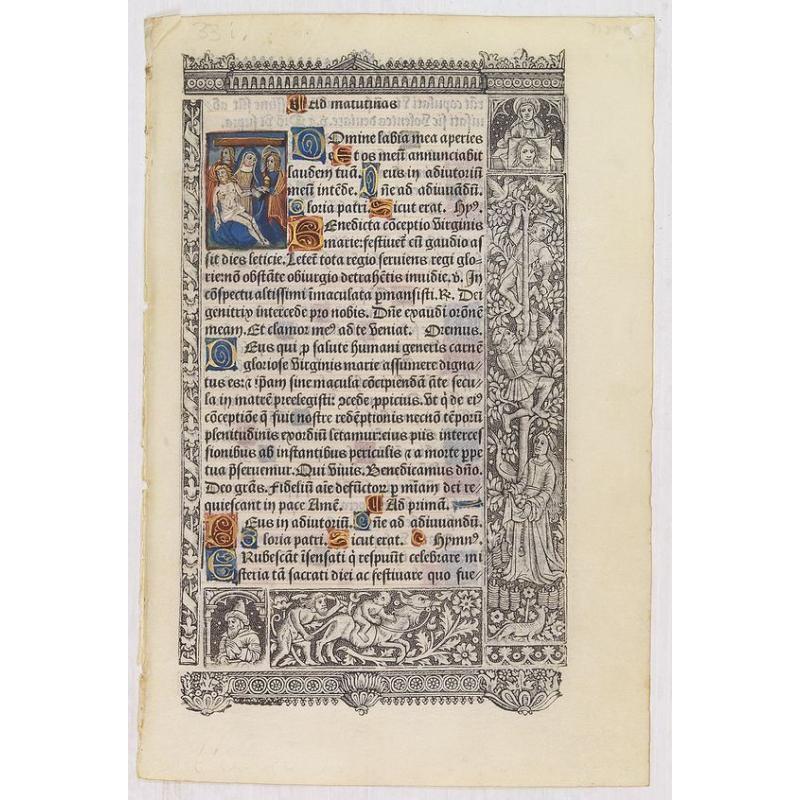 33 i.
Ad matutinas
Domine labia mea aperies
Et os meū annunciabit
laudem tuā. Deus in adiutoriū
meū intēde. Dñe ad adiuuandū.
Gloria patri. Sicut erat. Hyꝰ.
Benedicta cōceptio virginis
marie: festiuet cū gaudio as
sit dies leticie. Letet̄ tota regio seruiens regi glo-
rie: nō obstāte obiurgio detrahētis inuidie. v̄. In
cōspectu altissimi īmaculata ꝑmansisti. R̄. Dei
genitrix intercede pro nobis. Dñe exaudi orōnē
meam. Et clamor meꝰ ad te veniat. Oremus.
Deus qui ꝓ salute humani generis carnē
gloriose virginis marie assumere digna-
tus es: ⁊ ip̄am sine macula cōcipiendam āte secu-
la in matrē preelegisti: ꝯcede ꝓpicius. Vt q̄ de eiꝰ
cōceptiōe q̄ fuit nostre redēptionis necnō tēporū
plenitudinis exordiū letamur: eius piis interces
sionibus ab instantibus periculis ⁊ a morte ꝑpe
tua p̄seruemur. Qui viuis. Benedicamus dño.
Deo grās. Fideliū aīe defūctoꝝ ꝑ mīam dei re-
quiescant in pace Amē. Ad primā.
Deus in adiutoriū. Dñe ad adiuuandū.
Gloria patri. Sicut erat. Hymnꝰ.
Erubescāt īsensati q̇ respuūt celebrare mi
steria tā sacrati diei ac festiuare quo fue-